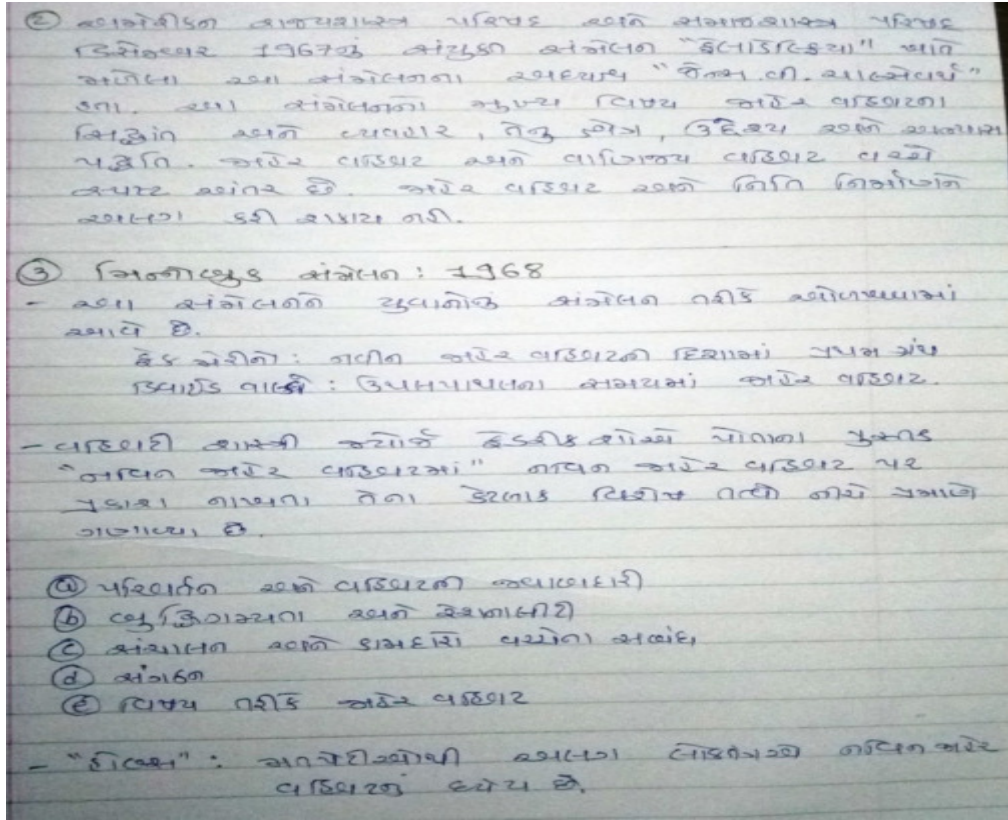 ② અમેરીકન રાજયશાસ્ત્ર પરિષદ અને સમાજશાસ્ત્ર પરિષદ
ડિસેમ્બર 1967નું સંયુક્ત સંમેલન "ફેલાડેલ્ફિયા" ખાતે
મળેલા આ સંમેલનના અધ્યક્ષ "જેમ્સ.વી.
હતા. આ સંમેલનનો મુખ્ય વિષય જાહેર વહિવટના
સિદ્ધાંત અને વ્યવહાર, તેનુ ક્ષેત્ર, ઉદ્દેશ્ય અને અભ્યાસ
પદ્ધતિ. જાહેર વહિવટ અને વાણિજ્ય વહિવટ વચ્ચે
સ્પષ્ટ અંતર છે. જાહેર વહિવટ અને નિતિ નિર્માણને
અલગ કરી શકાય નહી.
③ મિન્નોબ્રુક સંમેલન : 1968
- આ સંમેલનને યુવાનોનું સંમેલન તરીકે ઓળખવામાં
આવે છે.
ફ્રેંક મેરીનો : નવીન જાહેર વહિવટની દિશામાં પ્રથમ ગ્રંથ
ડ્વાઈટ વાલ્ડો : ઉથલપાથલના સમયમાં જાહેર વહિવટ.
- વહિવટી શાસ્ત્રી જ્યોર્જ ફ્રેડરીકશોએ પોતાના પુસ્તક
"નવિન જાહેર વહિવટમાં" નવિન જાહેર વહિવટ પર
પ્રકાશ નાખતા તેના કેટલાક વિશેષ તત્વો નીચે પ્રમાણે
ગણાવ્યા છે.
ⓐ પરિવર્તન અને વહિવટની જવાબદારી
ⓑ બુદ્ધિગમ્યતા અને
ⓒ સંચાલન અને કામદારો વચ્ચેના સબંધ
ⓓ સંગઠન
ⓔ વિષય તરીકે જાહેર વહિવટ
- મતપેટીઓથી અલગ લોકતંત્રએ નવિન જાહેર
વહિવટનું ધ્યેય છે.